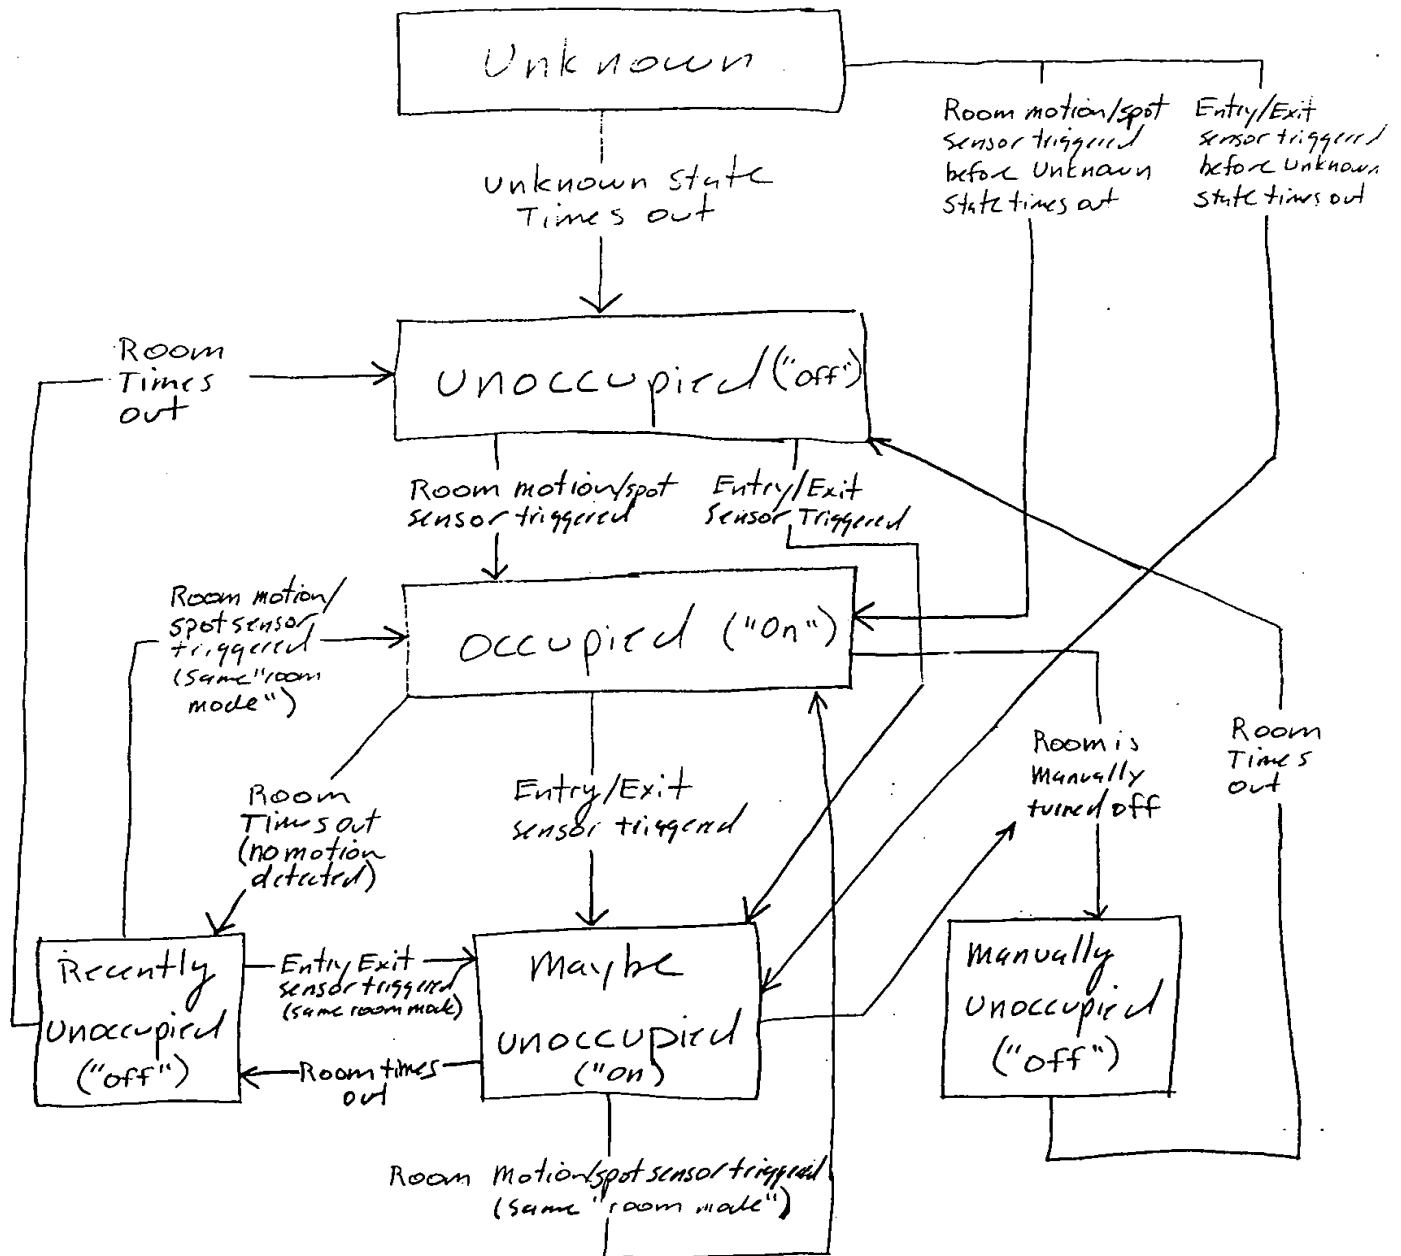 Unknown
Room motion/spot
sensor triggered
before Unknown
State times out
Entry/Exit
sensor triggered
before Unknown
State times out
Unknown State
Times out
Room
Times
out
Unoccupied ("off")
Room motion/spot
sensor triggered
Entry/Exit
Sensor Triggered
Room motion/
spot sensor
triggered
(same "room
mode")
Occupied ("On")
Room
Times out
(no motion
detected)
Entry/Exit
sensor triggered
Room is
Manually
turned off
Room
Times
out
Recently
Unoccupied
("off")
Entry/Exit
sensor triggered
(same room mode)
Room times
out
Maybe
Unoccupied
("on)
Manually
Unoccupied
("off")
Room Motion/spot sensor triggered
(same "room mode")